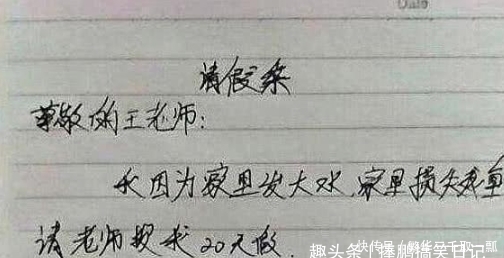 Date
请假条
尊敬的王老师:
我因为家里发大水,家里损失惨重
请老师授我20天假.
快传号
趣头条 捧鹏搞笑日记